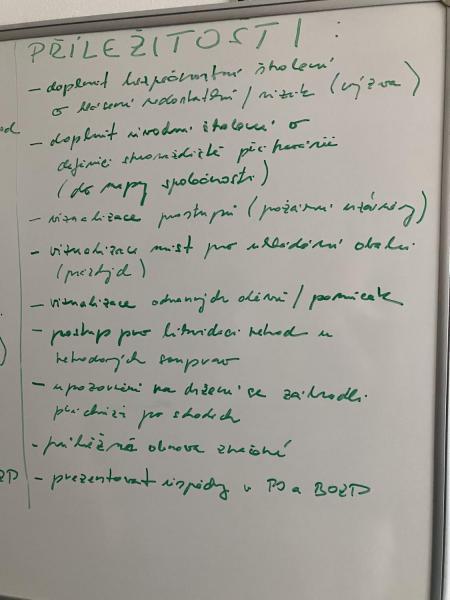 PŘÍLEŽITOSTI :
- doplnit bezpečnostní školení
o hlášení nedostatků / rizik (výzva)
- doplnit úvodní školení o
definici shromaždiště při havárii
(do mapy společnosti)
- vizualizace postupů (požární uzávěry)
- vizualizace míst pro ukládání obalů
(prázdných)
- vizualizace ochranných / pomůcek
- postup pro likvidaci nehod u
nehodových souprav
- upozornění na držení se zábradlí
při chůzi po schodech
- průběžná obnova značení
- prezentovat úspěchy v PO a BOZP